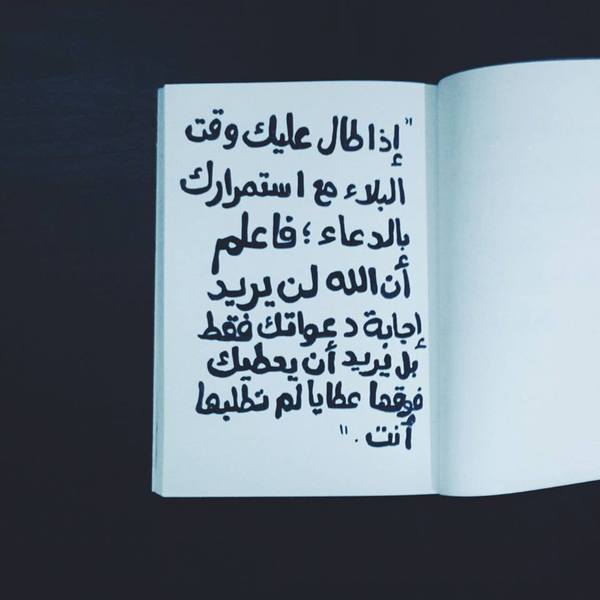 "إذا طال عليك وقت
البلاء مع استمرارك
بالدعاء؛ فاعلم
أن الله لن يريد
إجابة دعواتك فقط
بل يُريد أن يعطيك
فوقها عطايا لم تطلبها
أنت."